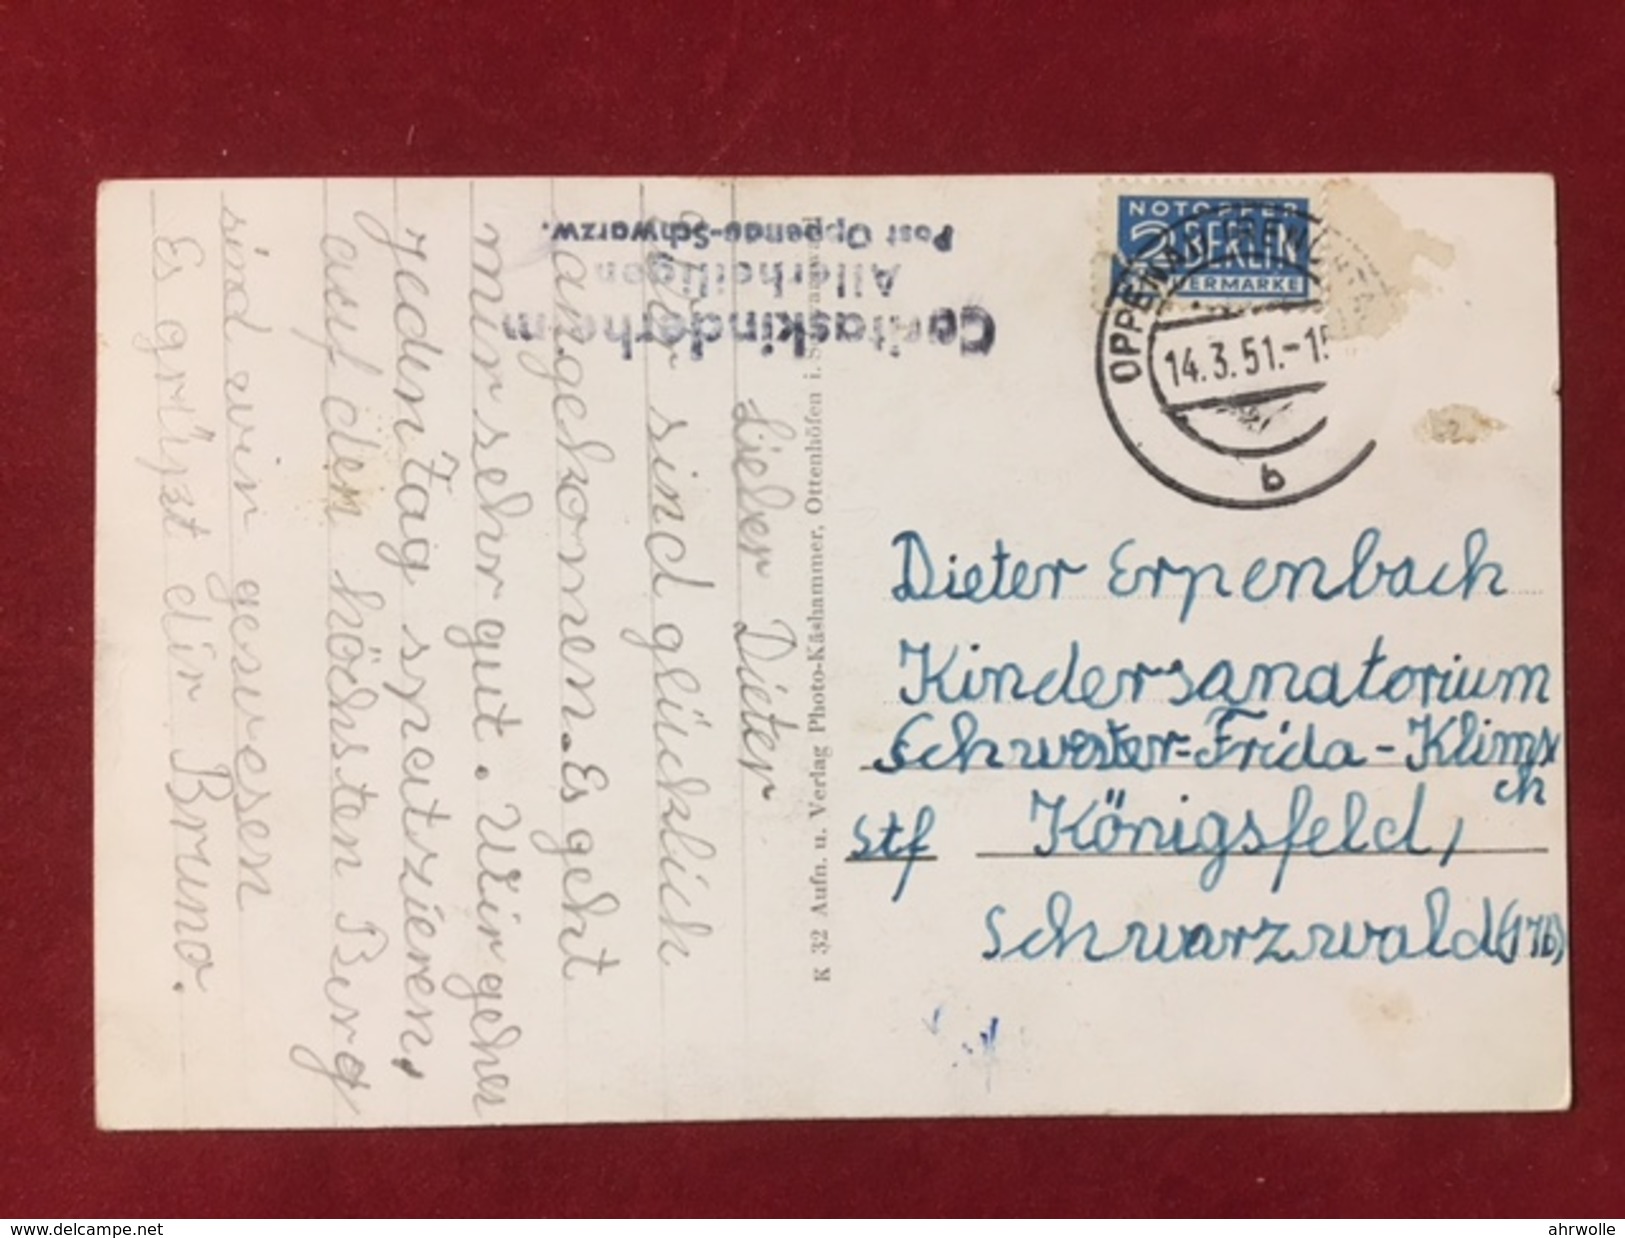 Caritaskinderheim
Allerheiligen
Post Oppenau-Schwarzw.
Lieber Dieter
Wir sind glücklich
angekommen. Es geht
mir sehr gut. Wir gehen
jeden Tag spatzieren,
auf den höchsten Berg
sind wir gewesen
Es grüßt dir Bruno.
K 32 Aufn. u. Verlag Photo-Käshammer, Ottenhöfen i.
NOTOPFER
2 BERLIN
STEUERMARKE
OPPENAU (RENCHTAL)
14.3.51.-15
b
Dieter Erpenbach
Kindersanatorium
Schwester-Frida-Klims
ch
Stf Königsfeld,
Schwarzwald (17b)
www.delcampe.net
ahrwolle